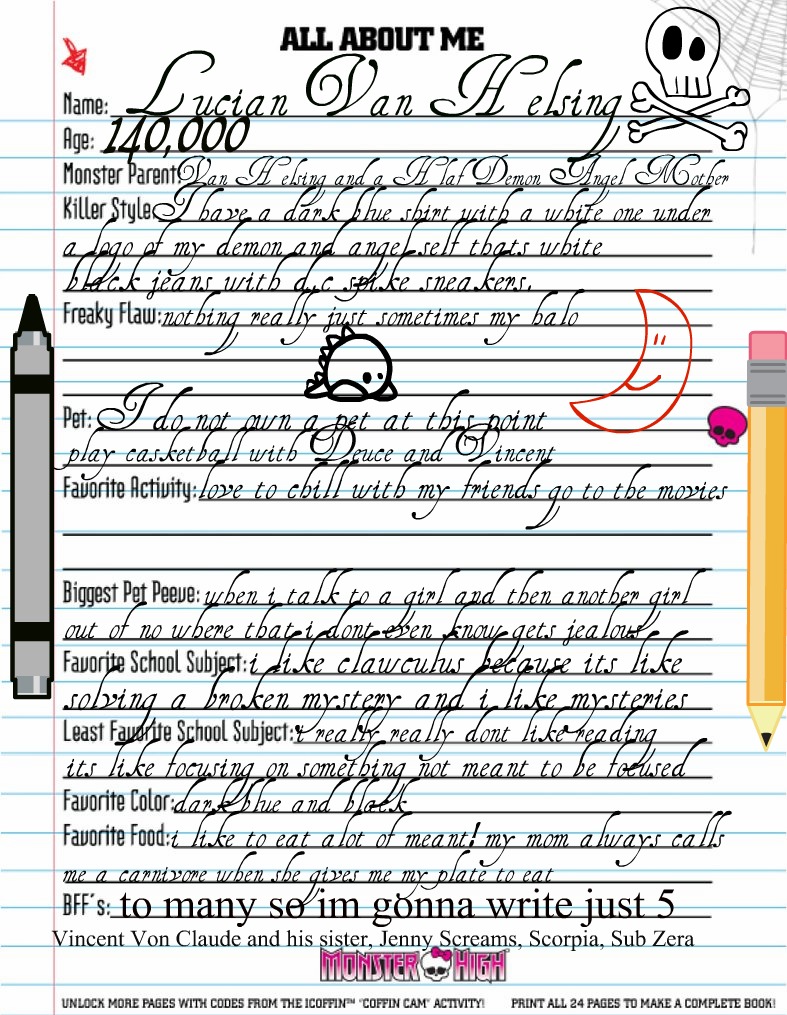 ALL ABOUT ME
Name: Lucian Van Helsing
Age: 140,000
Monster Parent: Van Helsing and a Hlaf Demon Angel Mother
Killer Style: I have a dark blue shirt with a white one under
a logo of my demon and angel self thats white
black jeans with d.c spike sneakers.
Freaky Flaw: nothing really just sometimes my halo
Pet: I do not own a pet at this point
play casketball with Deuce and Vincent
Favorite Activity: love to chill with my friends go to the movies
Biggest Pet Peeve: when i talk to a girl and then another girl
out of no where that i dont even know gets jealous
Favorite School Subject: i like clawculus because its like
solving a broken mystery and i like mysteries
Least Favorite School Subject: i really really dont like reading
its like focusing on something not meant to be focused
Favorite Color: dark blue and black
Favorite Food: i like to eat alot of meant! my mom always calls
me a carnivore when she gives me my plate to eat
BFF's: to many so im gonna write just 5
Vincent Von Claude and his sister, Jenny Screams, Scorpia, Sub Zera
MONSTER HIGH
UNLOCK MORE PAGES WITH CODES FROM THE ICOFFIN™ "COFFIN CAM" ACTIVITY! PRINT ALL 24 PAGES TO MAKE A COMPLETE BOOK!